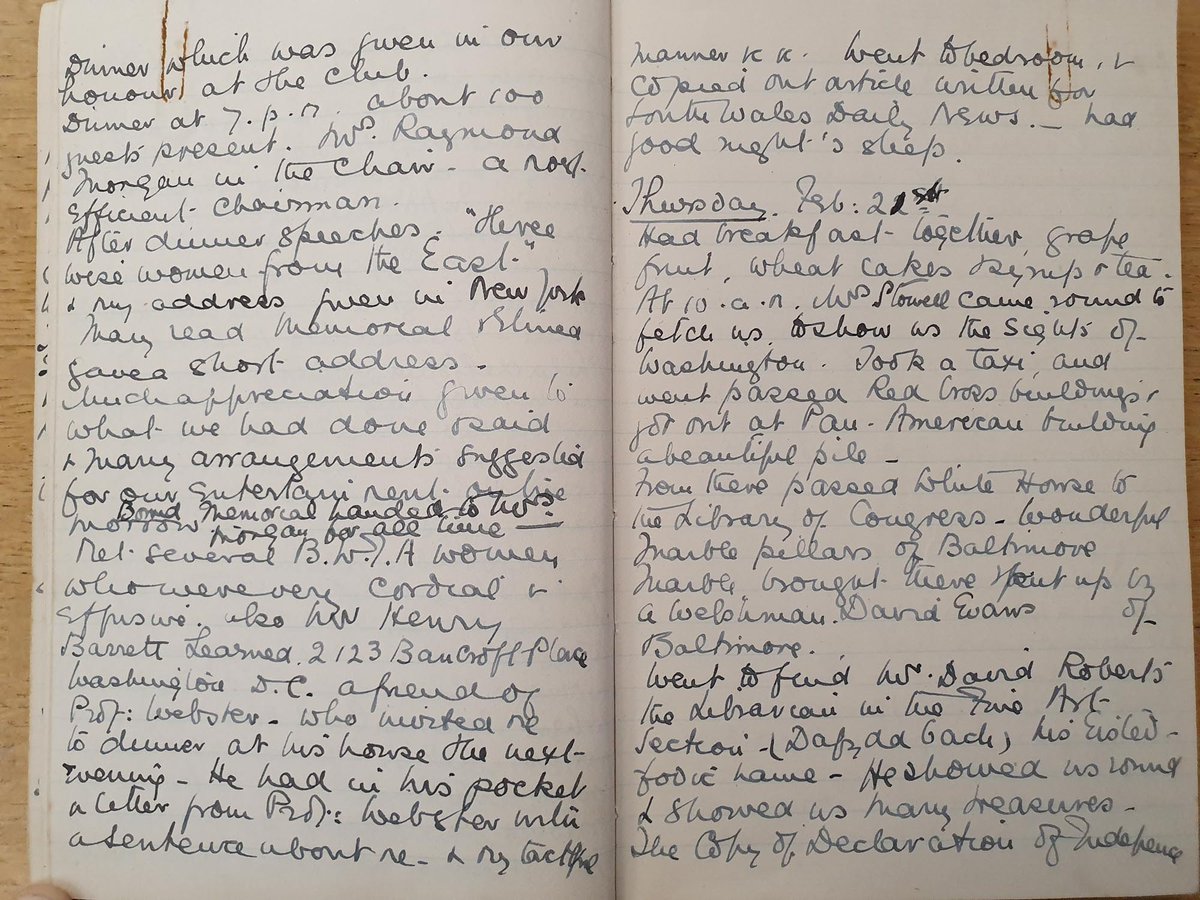 Dinner which was given in our
honour at the Club.
Dinner at 7. p.m. about 100
guests present. Mrs Raymond
Morgan in the Chair - a most
efficient chairman.
After dinner speeches. "Three
wise women from the East"
& my address given in New York
Mary read Memorial & Elined
gave a short address.
Much appreciation given to
what we had done & said
& many arrangements suggested
for our entertainment on the
morrow Bound Memorial handed to Mrs
Morgan for all time
Met several B.W.T.A women
who were very cordial &
effusive. also Mr Henry
Barrett Learned. 2123 Bancroft Place
Washington D.C. a friend of
Prof: Webster - who invited me
to dinner at his house the next
evening - He had in his pocket
a letter from Prof: Webster with
a sentence about me - & my tactful
manner &c &c. Went to bedroom, &
copied out article written for
South Wales Daily News. - had
good night's sleep.
Thursday. Feb: 21st
Had breakfast together, grape
fruit, wheat cakes & syrup & tea.
At 10. a.m. Mrs Stowell came round to
fetch us, to show us the sights of
Washington. Took a taxi, and
went passed Red Cross buildings &
got out at Pan-American building
a beautiful pile -
From there passed White House to
the Library of Congress - Wonderful
Marble pillars of Baltimore
Marble brought there & put up by
a Welshman. David Evans of
Baltimore.
Went to find Mr. David Roberts
the Librarian in the Fine Art
Section - (Dafydd bach) his Eisted-
fodic name - He showed us round
& showed us many treasures -
The Copy of Declaration of Indepenc